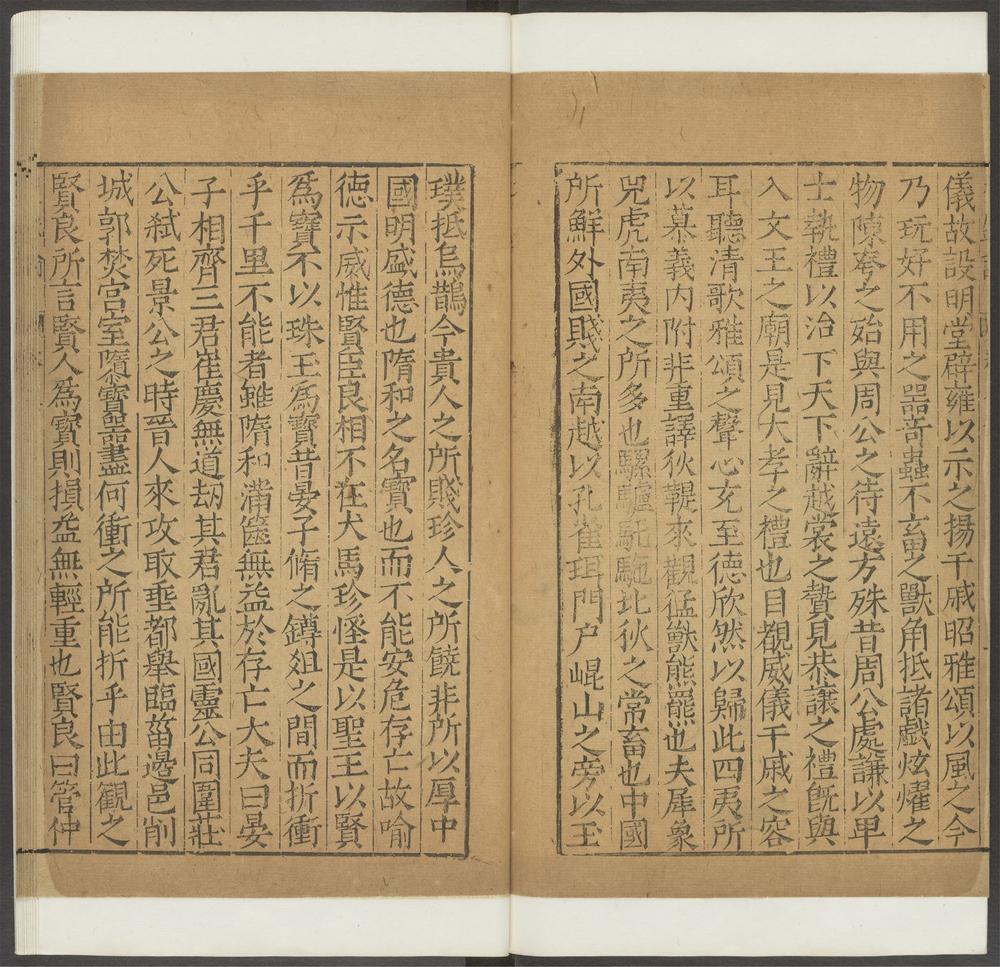 儀故設明堂辟雍以示之揚干戚昭雅頌以風之今
乃玩好不用之器奇蟲不畜之獸角抵諸戲炫燿之
物陳夸之殆與周公之待遠方殊昔周公處謙以卑
士執禮以治下天下辭越裳之贄見恭讓之禮旣與
入文王之廟是見大孝之禮也目覩威儀干戚之容
耳聽清歌雅頌之聲心充至德欣然以歸此四夷所
以慕義內附非重譯狄鞮來觀猛獸熊羆也夫犀象
兕虎南夷之所多也騾驢馲駞北狄之常畜也中國
所鮮外國賤之南越以孔雀珥門户崐山之旁以玉
璞抵烏鵲今貴人之所賤珍人之所饒非所以厚中
國明盛德也隋和之名寶也而不能安危存亡故喻
德示威惟賢臣良相不在犬馬珍怪是以聖王以賢
爲寶不以珠玉爲寶昔晏子脩之罇俎之間而折衝
乎千里不能者雖隋和滿篋無益於存亡大夫曰晏
子相齊三君崔慶無道刼其君亂其國靈公同圍莊
公弑死景公之時晉人來攻取垂都舉臨菑邊邑削
城郭焚宮室隳寶器盡何衝之所能折乎由此觀之
賢良所言賢人爲寶則損益無輕重也賢良曰管仲